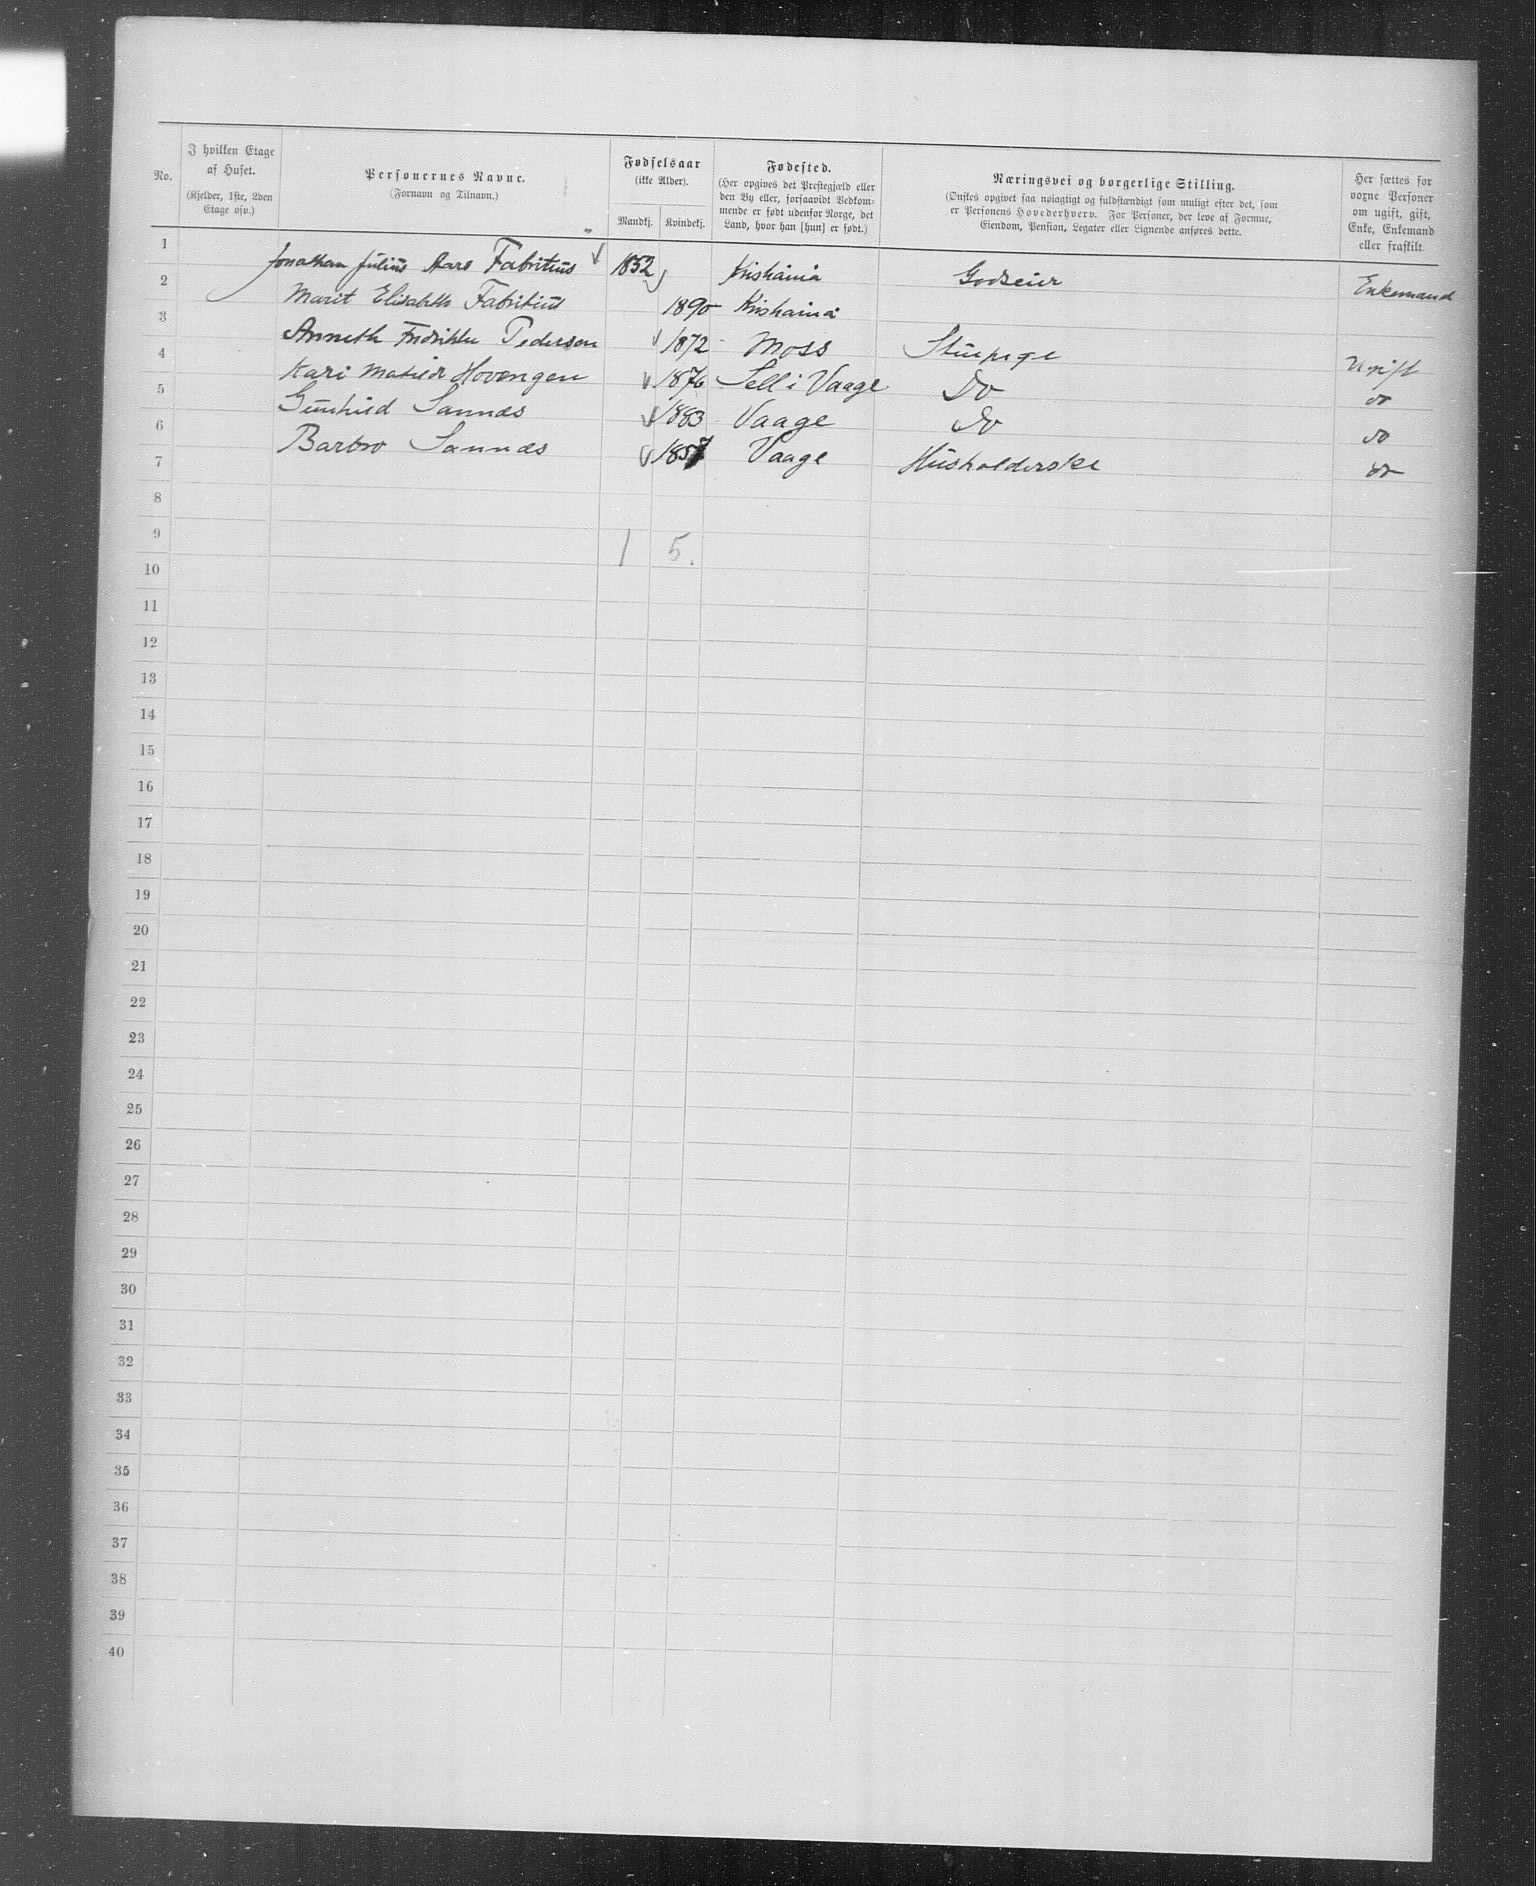 No. | I hvilken Etage af Huset. (Kjelder, 1ste, 2den Etage osv.) | Personernes Navne. (Fornavn og Tilnavn.) | Fødselsaar (ikke Alder). Mandkj. | Kvindekj. | Fødested. (Her opgives det Prestegjæld eller den By eller, forsaavidt Vedkommende er født udenfor Norge, det Land, hvor han [hun] er født.) | Næringsvei og borgerlige Stilling. (Ønskes opgivet saa nøiagtigt og fuldstændigt som muligt efter det, som er Personens Hovederhverv. For Personer, der leve af Formue, Eiendom, Pension, Legater eller Lignende anføres dette. | Her sættes for voxne Personer om ugift, gift, Enke, Enkemand eller fraskilt.
1 Jonathan Julius Aars Fabritius 1852 Kristiania Godseier Enkemand
2 Marit Elisabeth Fabritius 1890 Kristiania
3 Anneth Fredrikke Pedersen 1872 Moss Stuepige Ugift
4 Kari Matilde Hovengen 1876 Sell i Vaage Do do
5 Gunhild Sannæs 1883 Vaage Do do
6 Barbro Sannæs 1857 Vaage Husholderske do
7
8
9 1 5.
10
11
12
13
14
15
16
17
18
19
20
21
22
23
24
25
26
27
28
29
30
31
32
33
34
35
36
37
38
39
40